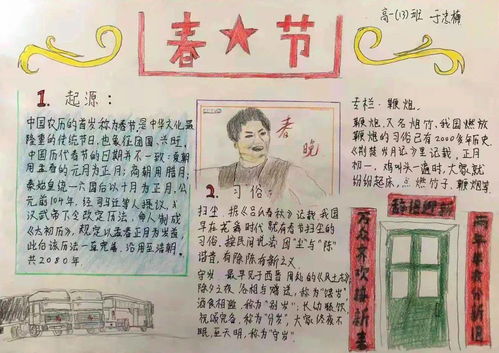 春★节
高一(13)班 于忠梅
1. 起源:
中国农历的首岁称为春节,是中华文化最
隆重的传统节日,也象征团圆、兴旺,
中国历代春节的日期并不一致:夏朝
用孟春的元月为正月;商朝用腊月,
秦始皇统一六国后以十月为正月,公
元前104年,经司马迁等人提议,汉
武帝下令改定历法,令人制成
《太初历》,规定以孟春正月为岁首,
此后该历法一直完善、沿用至清朝,
共2080年
春晚
2. 习俗:
扫尘,据《吕氏春秋》记载,我国
早在尧舜时代就有春节扫尘的
习俗,按民间说法:因"尘"与"陈"
谐音,有除陈布新之义
守岁 最早见于西晋周处的《风土志》
除夕之夜,各相与赠送,称为"馈岁"
酒食相邀,称为"别岁";长幼聚饮,
祝颂完备,称为"分岁",大家终夜不
眠,至天明,称为"守岁".
专栏、鞭炮.
鞭炮,又名炮竹,我国燃放
鞭炮的习俗已有2000多年历史
《荆楚岁月记》里记载,正月
初一,鸡叫头一遍时,大家就
纷纷起床,点燃竹子、鞭炮等
辞旧迎新
万众齐欢接新春
两年半夜分新旧